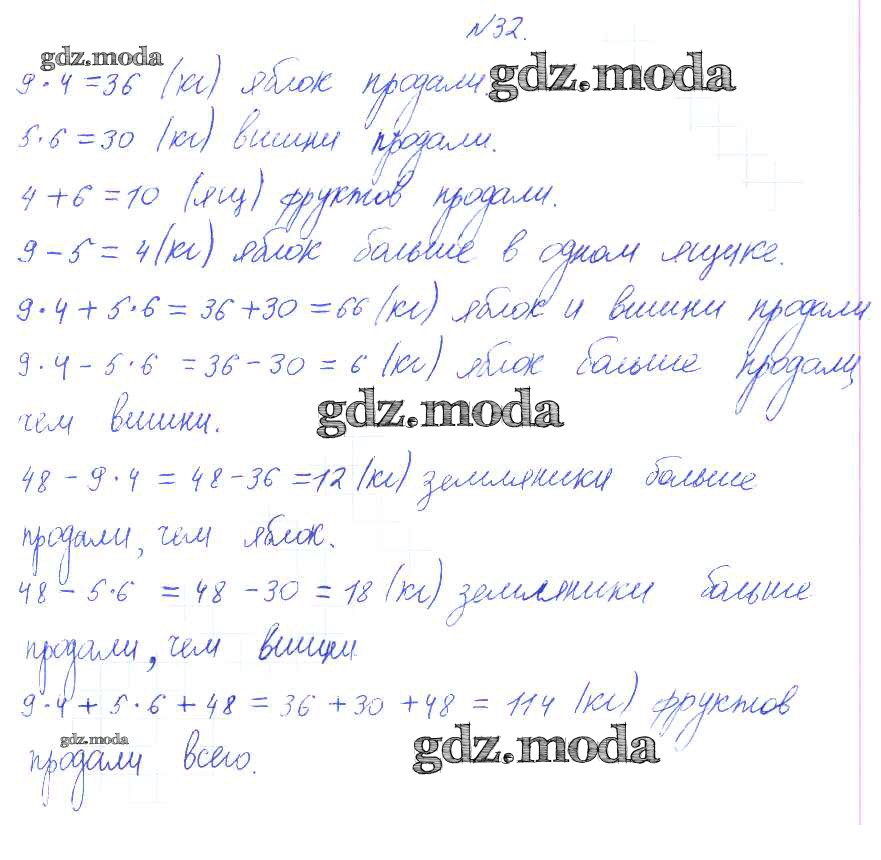 №32.
gdz.moda
9·4=36 (кг) яблок продали.
gdz.moda
5·6=30 (кг) вишни продали.
4+6=10 (ящ) фруктов продали.
9-5=4(кг) яблок больше в одном ящике.
9·4+5·6=36+30=66(кг) яблок и вишни продали
9·4-5·6=36-30=6(кг) яблок больше продали,
чем вишни.
gdz.moda
48-9·4=48-36=12(кг) земляники больше
продали, чем яблок.
48-5·6=48-30=18(кг) земляники больше
продали, чем вишни
9·4+5·6+48=36+30+48=114(кг) фруктов
gdz.moda
продали всего.
gdz.moda